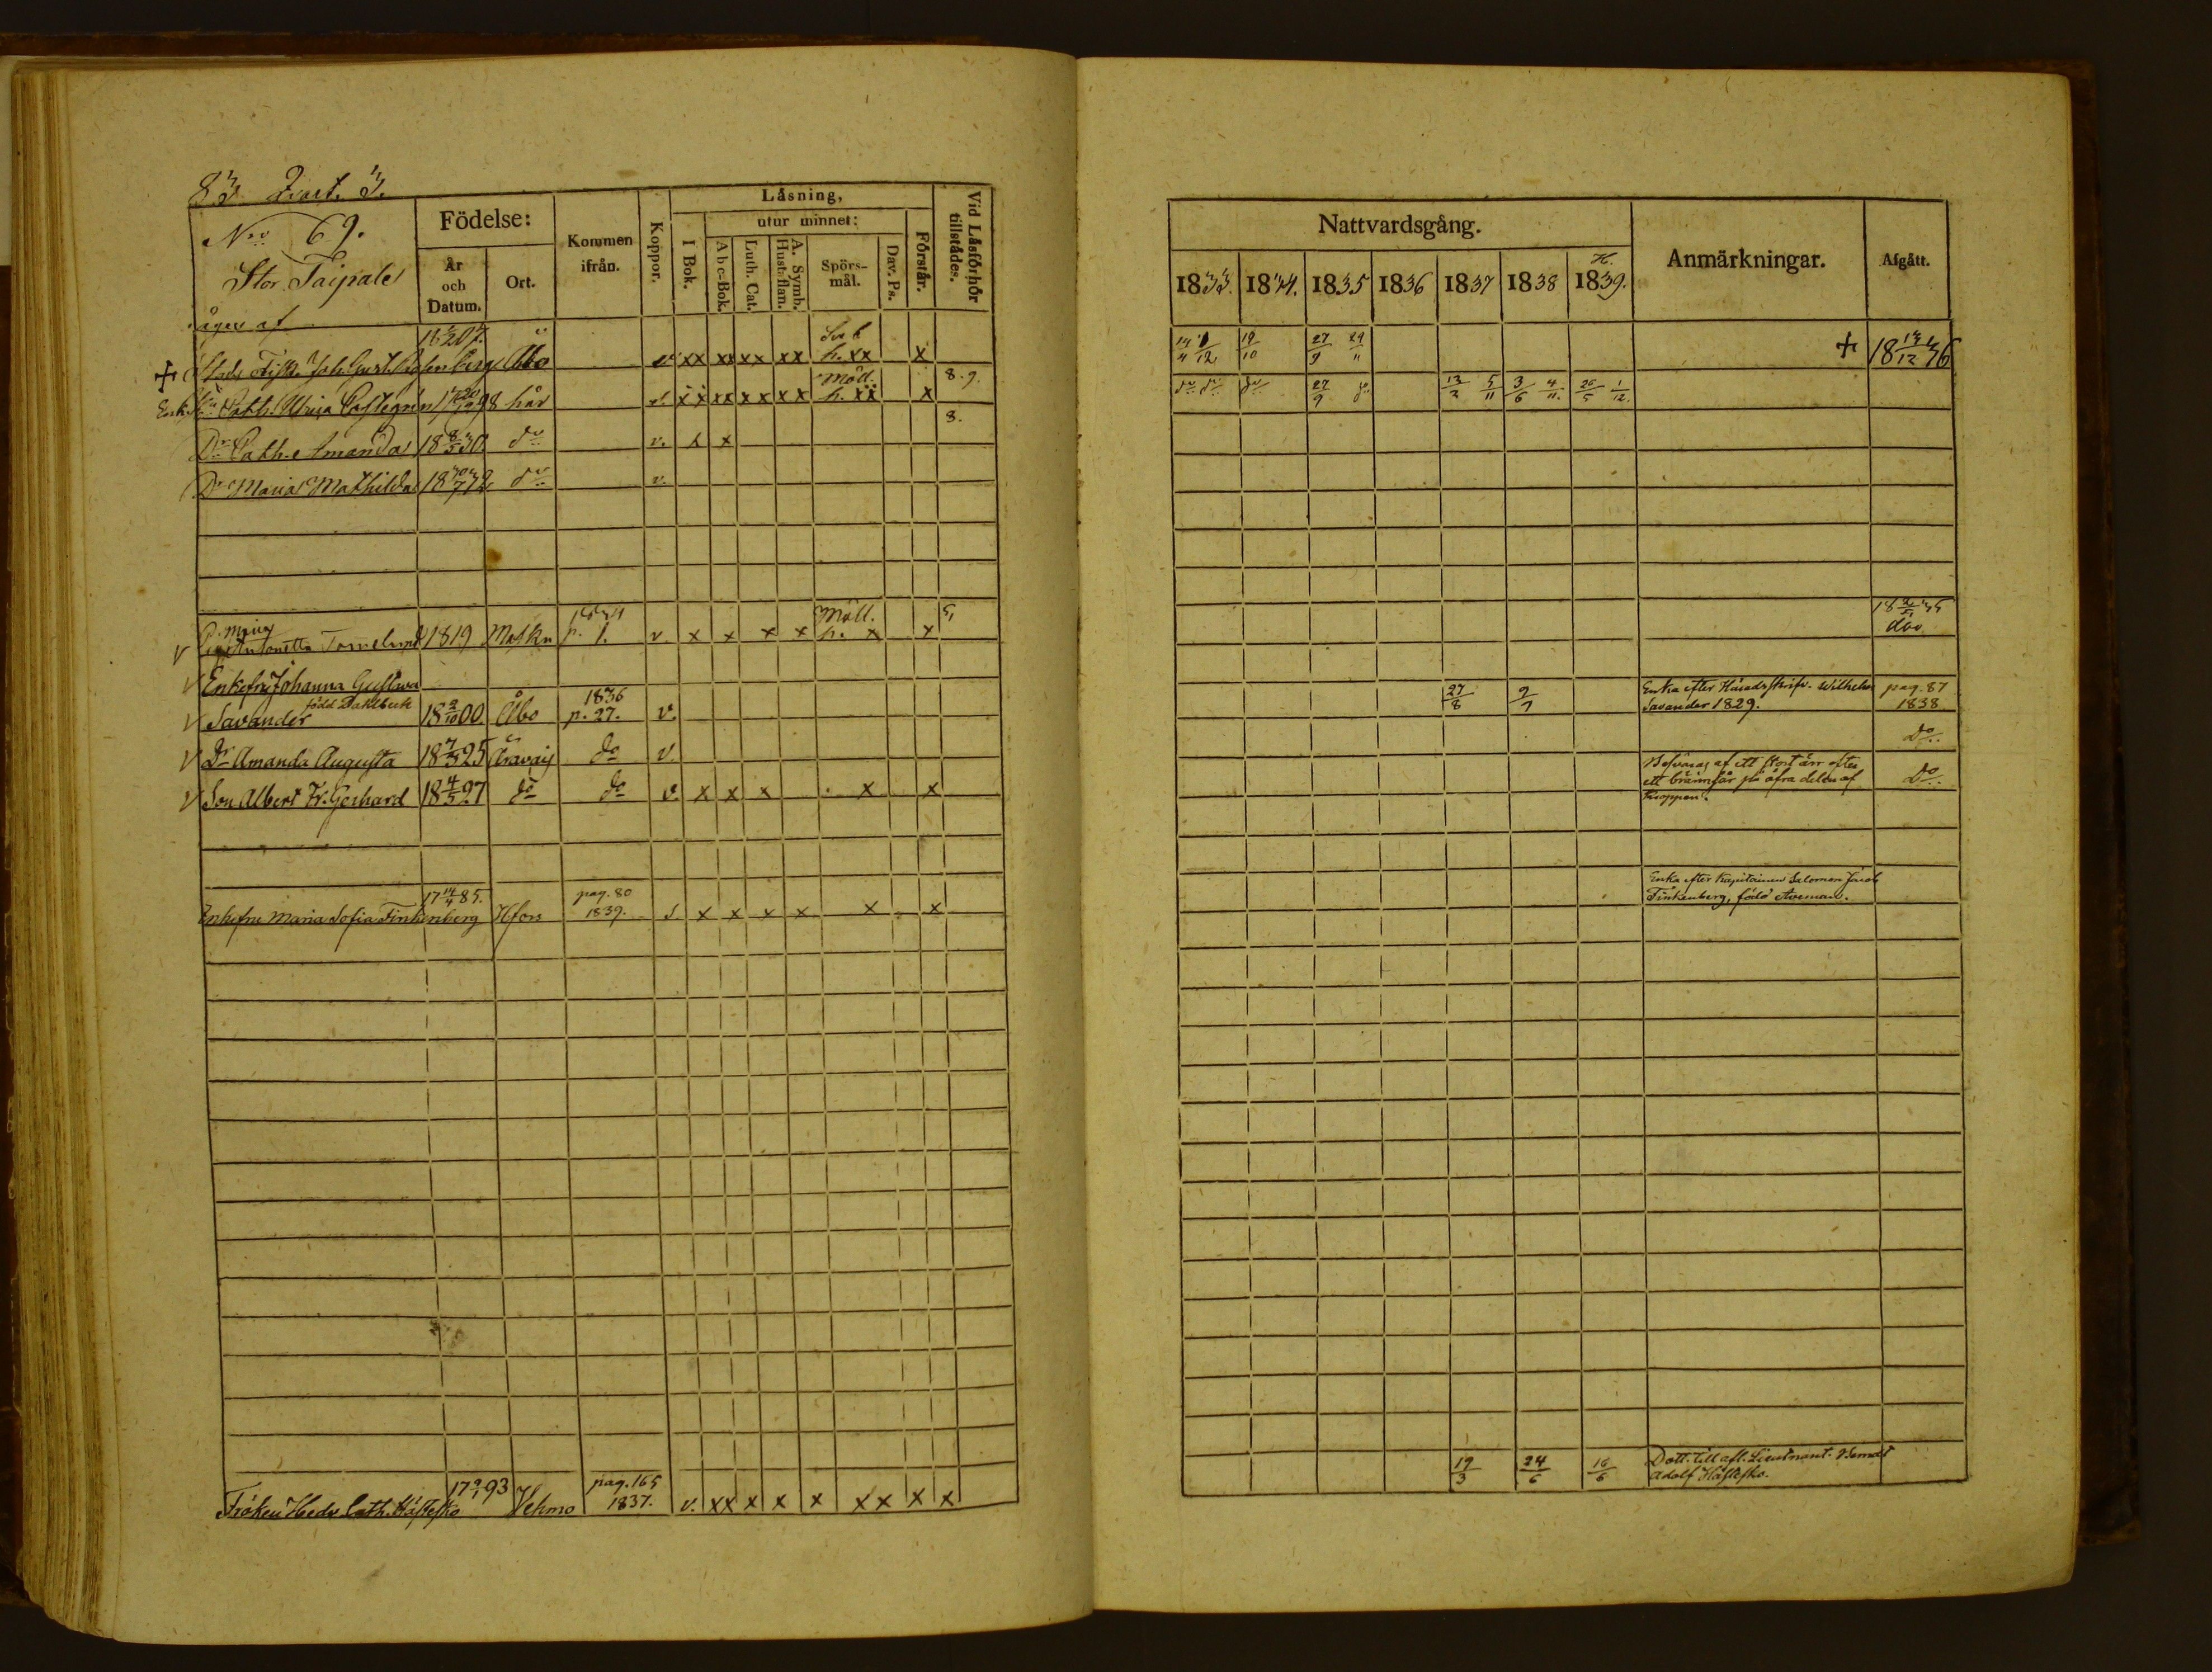 83 Qvart. 3.
Nro 69.
Stor Taipale
äges af
Födelse:
År och Datum.
Ort.
Kommen ifrån.
Koppor.
Läsning,
I Bok.
utur minnet:
A b c-Bok.
Luth. Cat.
A. Symb. Hustaflan.
Spörsmål.
Dav. Ps.
Förstår.
Vid Läsförhör tillstädes.
Åbo v. xx xx xx xx h. xx x
Enk. Cath. Ulrica Castegren 98 här v. xx xx xx xx Möll. h. xx x 8. 9.
Dr Cath. Amanda 18 8/5 30 do v. x x 8.
Dr Maria Mathilda 18 32 do v.
v Pig. Maria Antonetta Tornelund 1819 Masku 1834 p. 1. v x x x x Möll. h. x x 5
v Enkefru Johanna Gustava
v Savander född Dahlbeck 18 2/10 00 Åbo 1836 p. 27. v.
v Dr Amanda Augusta 18 7/3 25 do v.
v Son Albert Fr. Gerhard 18 4/5 27 do do v. x x x x x
Enkefru Maria Sofia Finkenberg 17 14/4 85. Hfors pag. 80 1839. x x x x x x
Fröken Hedv. Cath. Hästesko 17 9/1 93 Vehmo pag. 165 1837. v. xx x x x xx x x
Nattvardsgång.
1833. 1834. 1835 1836 1837 1838 H. 1839.
Anmärkningar.
Afgått.
19/10 27/9 29/11 + 18 36
do do do 27/9 do 5/11 3/6 4/11 26/5 1/12.
18 35
27/8 9/7 Enka efter Häradsskrifv. Wilhelm Savander 1829. pag. 87 1838
Do
af ett stort ärr efter ett brännsår på öfra delen af kroppen. Do
Enka efter Kapitainen Salomon Jacob Finkenberg, född Aveman.
19/3 24/6 16/6 Dott. till afl. Lieutnant. Berndt Adolf Hästesko.